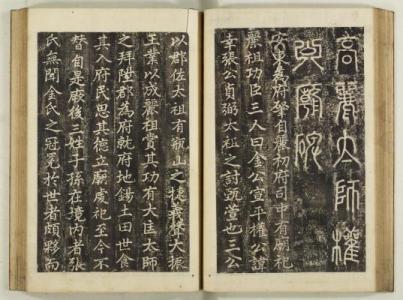 高麗太師權
公廟碑
安東為府肇自麗初府司中有廟祀
麗祖功臣三人曰金公宣平權公諱
幸張公貞弼太祖之討甄萱也三公
以郡佐太祖有瓶山之捷義聲大振
王業以成麗祖賞其功有大匡太師
之拜陞郡為府就府地錫土田世食
其入府民思其德立廟虔祀至今不
替自是厥後三姓子孫在境內者張
氏無聞金氏之冠冕於世者頗夥而